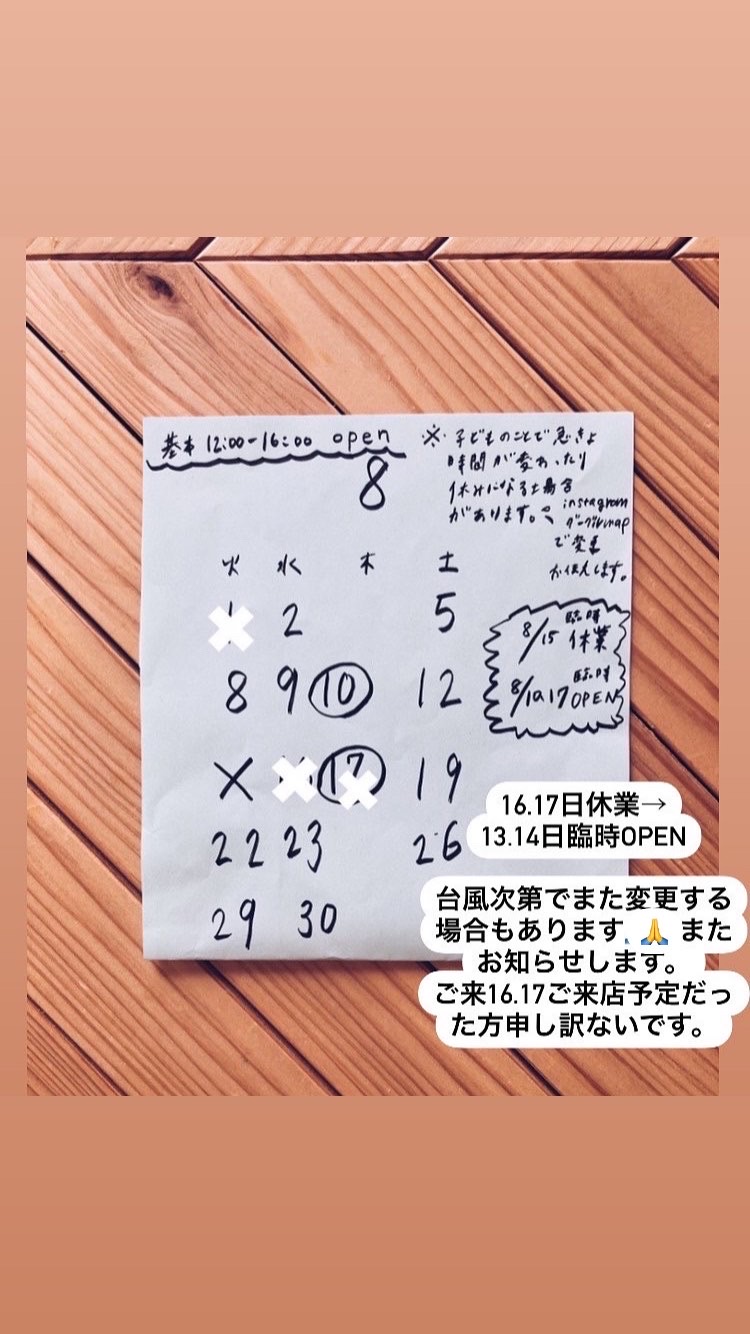 基本 12:00-16:00 open
8
※ 子どものことで急きょ
時間が変わったり
休みになる場合
があります。
instagram
グーグルmap
で変更
お伝えします。
火 水 木 土
2 5
8 9 10 12
17 19
22 23 26
29 30
8/15 臨時
休業
8/10.17 臨時
OPEN
16.17日休業→
13.14日臨時OPEN
台風次第でまた変更する
場合もあります🙏 また
お知らせします。
ご来16.17ご来店予定だっ
た方申し訳ないです。